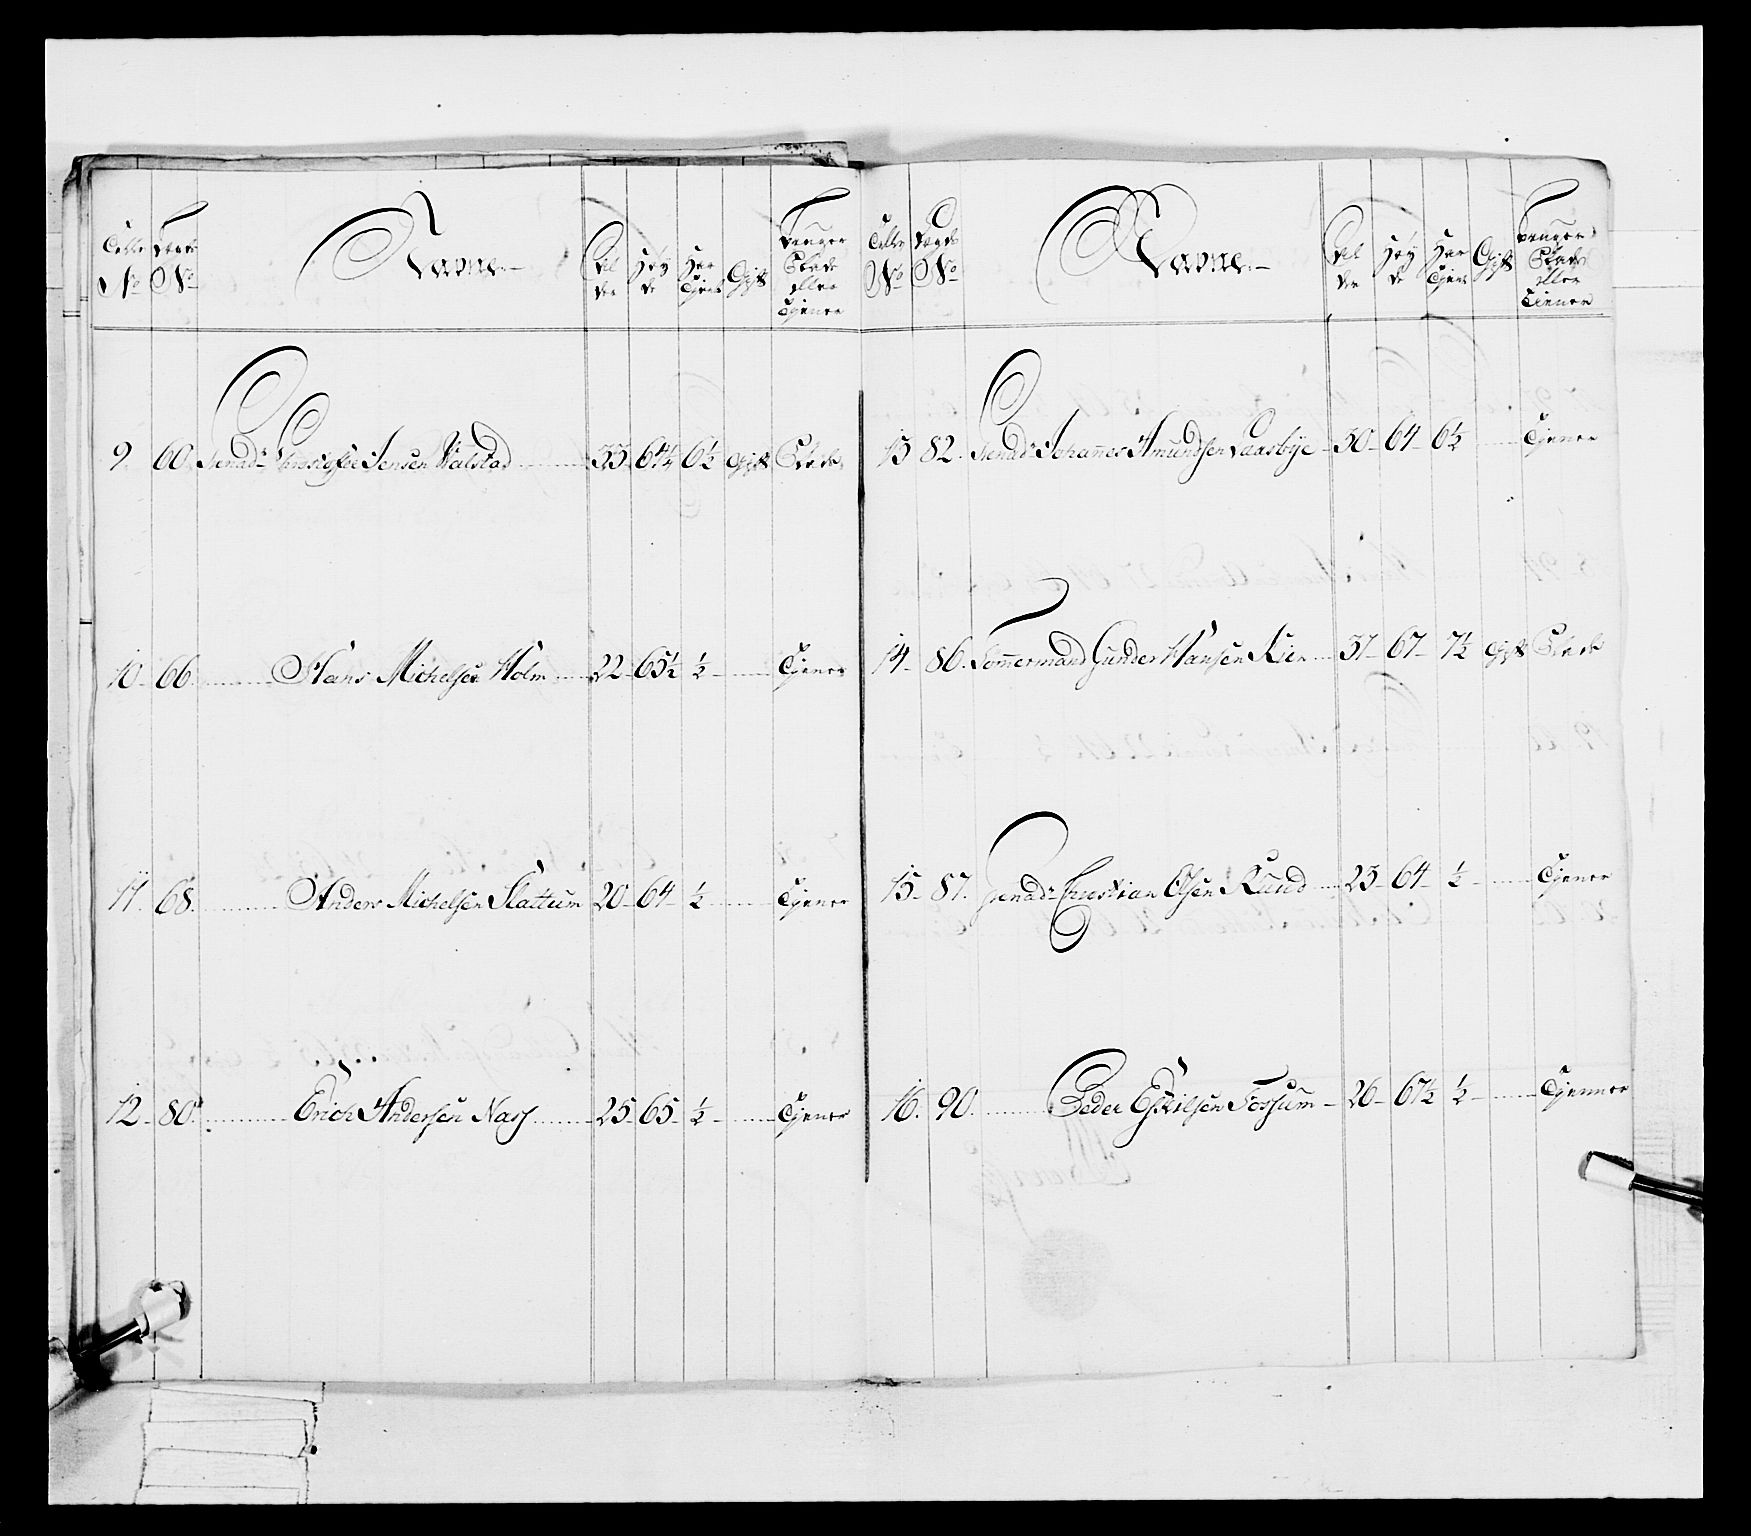 Tolle No Lægds No Navne Alder Høyde Har Tjent Gift Penger Stade eller Tjener
9. 60. Grenadr Christofer Jensen Walstad 33 64¼ 6½ Gift Stade
10 66 Hans Michelsen Holm 22 65½ ½ Tjener
11. 68. Anders Michelsen Slattum 20 64 ½ Tjener
12 80 Erich Andersen Nass 25 65 ½ Tjener
Tolle No Lægds No Navne Alder Høyde Har Tjent Gift Penger Stade eller Tienner
13 82. Grenadr Johannes Amundsen Laasbye 30 64 6½ Tjener
14 86. Tømmermand Gunder Hansen Kier 31 67 7½ Gift Stade
15 87. Grenadr Christian Olsen Ruud 23 64 ½ Tjener
16. 90. Peder Eskilsen Fossum 26 67½ ½ Tjenner